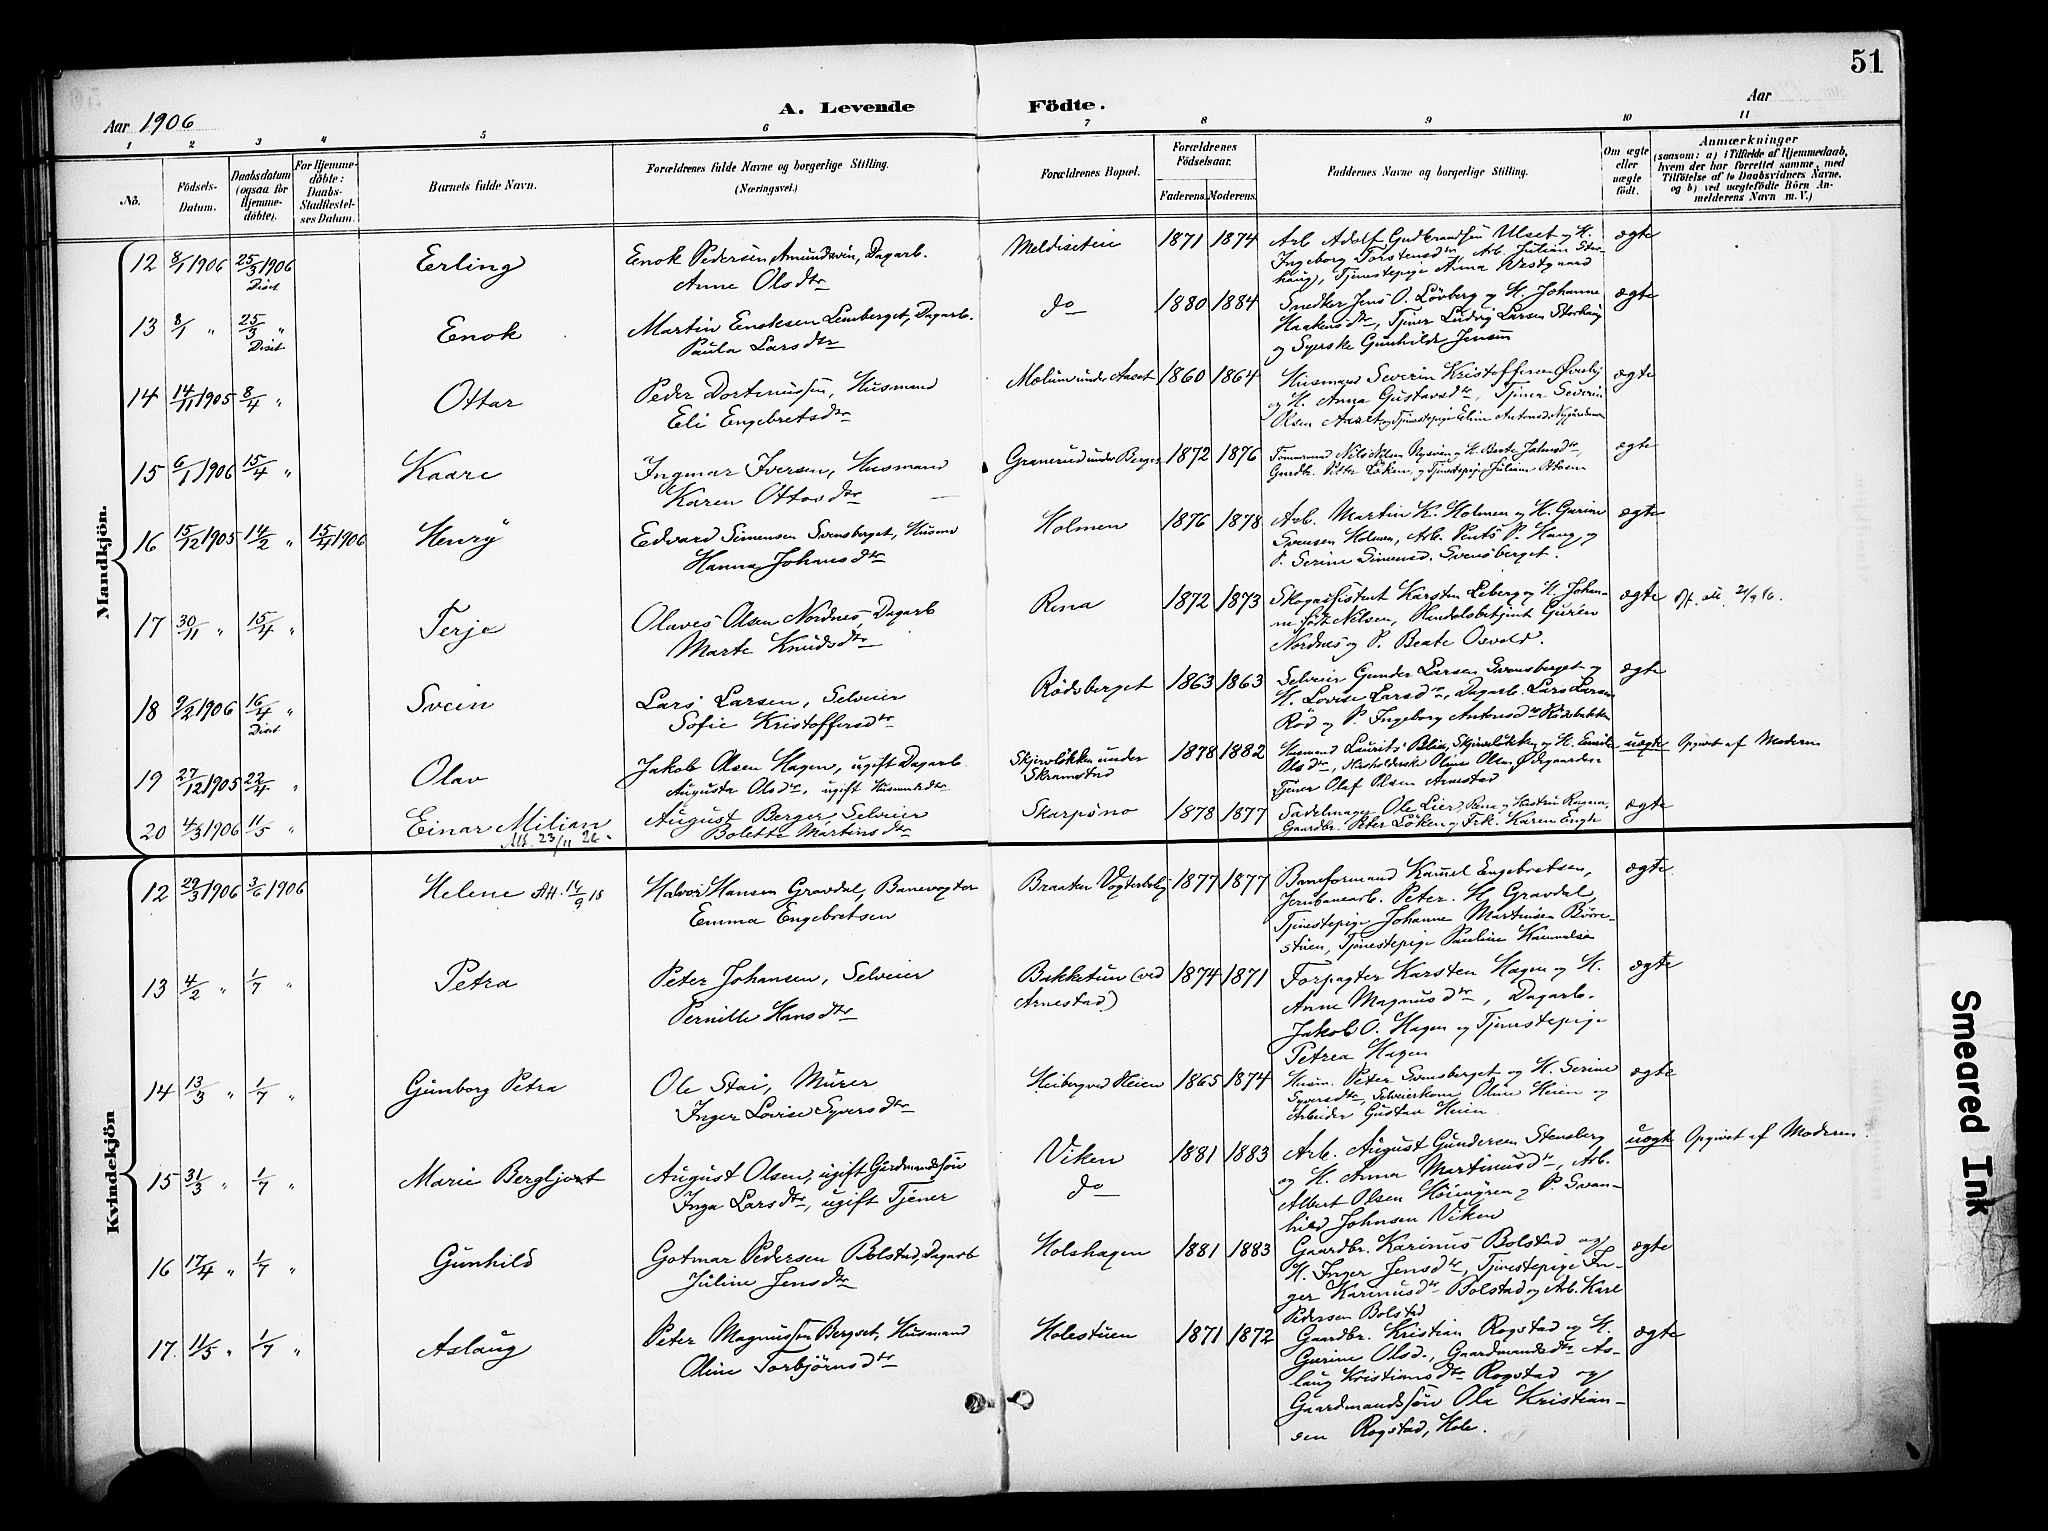 51
Aar 1906
A. Levende Födte.
Aar
1 2 3 4 5 6 7 8 9 10 11
No.
Födsels-Datum.
Daabsdatum (ogsaa for Hjemme-döbte).
For Hjemme-döbte: Daabs-Stadfæstel-ses Datum.
Barnets fulde Navn.
Forældrenes fulde Navne og borgerlige Stilling.
(Næringsvei.)
Forældrenes Bopæl.
Forældrenes Födselsaar.
Faderens. Moderens.
Faddernes Navne og borgerlige Stilling.
Om ægte eller uægte födt.
Anmærkninger
(saasom: a) i Tilfælde af Hjemmedaab, hvem der har forrettet samme, med Tilföielse af to Daabsvidners Navne, og b) ved uægtefödte Börn Anmelderens Navn m. V.)
Mandkjön.
12 8/1 1906 25/3 1906 Diset Erling Enok Pedersen Amundsvin, Dagarb. 1871 1874 Arb. Adolf Gudbrandsen Ulset og H. ægte
Anne Olsdtr Ingeborg Torstensdtr, Arb. Julian Stor-
haug, Tjenestepige Anna Vestgaard
13 8/1 " 25/3 " Diset Enok Martin Enoksen Lemberget, Dagarb. do 1880 1884 Snedker Jens O. Lövberg og H. Johanne ægte
Paula Larsdtr Haakensdtr, Tjener Ludvig Larsen Storhaug
og Syerske Gunhilde Jensen
14 14/11 1905 8/4 " Ottar Peder Dortenussen, Husmand Mælum under Aaset 1860 1864 Husmand Severin Kristoffersen Øverby ægte
Eli Engebretsdtr og H. Anna Gustavsdtr, Tjener Severin
Olsen Aaset og Tjenestepige Eline Antonsd.
15 6/1 1906 15/4 " Kaare Ingmar Iversen, Husmand Granerud under Berger 1872 1876 ægte
Karen Ottosdtr Gardbr. Peter Löken, og Tjenestepige Juliane Ottosen
16 15/12 1905 14/2 " 15/4 1906 Henry Edvard Simensen Svensberget, Husmd Holmen 1876 1878 Arb. Martin K. Holmen og H. Gurine ægte
Hanna Johansdtr Svensen Holmen, Arb. Pents P. Haug, og
P. Serine Simensd. Svensberget.
17 30/11 " 15/4 " Terje Olaves Olsen Nordnes, Dagarb Rena 1872 1873 Skogassistent Karsten Leberg og H. Johan- ægte
Marte Knudsdtr ne födt Nilsen, Handelsbetjent Gurên
Nordnes og P. Beate Osvold.
18 9/2 1906 16/4 " Diset Svein Lars Larsen, Selveier Rödsberget 1863 1863 Selveier Gunder Larsen Svensberget og ægte
Sofie Kristoffersdtr H. Lovise Larsdtr, Dagarb. Lars Larsen
Röd og P. Ingeborg Antonsdtr Rödsbakken
19 27/12 1905 22/4 " Olav Jakob Olsen Hagen, ugift Dagarb. Skjervlökken under 1878 1882 Husmand Laurits Skjervlökken og H. Emilie uægte Opgivet af Moderen
Augusta Olsdtr, ugift Husmdsdtr Skramstad Olsdtr, Husholderske Oline Olsen Ødegaarden
Tjener Olaf Olsen Arnestad
20 4/3 1906 11/5 " Einar Milian August Berger, Selveier Skarpsno 1878 1877 Sadelmager Ole Lier, Rena og Hustru Ragna, ægte
Att. 23/11 26. Bolette Martinsdtr Gaardbr. Peter Löken og Frk. Karen Engh
Kvindekjön
12 29/3 1906 3/6 1906 Helene Att. 14/9 18 Halvor Hansen Gravdal, Banevogter Braaten Vogterbolig 1877 1877 Baneformand Kamel Engebretsen, ægte
Emma Engebretsen Jernbanearb. Peter H. Gravdal,
Tjenestepige Johanne Martinsen Börre-
stuen, Tjenestepige Pauline Kamelsen
13 4/2 " 1/7 " Petra Peter Johansen, Selveier Bakketun (ved 1874 1871 Forpagter Karsten Hagen og H. ægte
Pernille Hansdtr Arnestad) Anne Magnusdtr, Dagarb.
Jakob O. Hagen og Tjenestepige
Petrea Hagen
14 13/3 " 1/7 " Gunborg Petra Ole Stai, Murer Heiberg ved Heien 1865 1874 Husm. Peter Svensberget og H. Serine ægte
Inger Lovise Syversdtr Syversdtr, Selveierkone Oline Heien og
Arbeider Gustav Heien.
15 31/3 " 1/7 " Marie Bergljot August Olsen, ugift Gardmandssön Viken 1881 1883 Arb. August Gundersen Stensberg uægte Opgivet af Moderen.
Inga Larsdtr, ugift Tjener do og H. Anna Martinusdtr, Arb.
Albert Olsen og P. Svan-
hild Johnsen Viken
16 17/4 " 1/7 " Gunhild Gotmar Pedersen Bolstad, Dagarb Holshagen 1881 1883 Gaardbr. Karinus Bolstad og ægte
Juline Jensdtr H. Inger Jensdtr, Tjenestepige In-
ger Karinusdtr Bolstad og Arb. Karl
Pedersen Bolstad
17. 11/5 " 1/7 " Aslaug Peter Magnussen Bergset, Husmand Holestuen 1871 1872 Gaardbr. Kristian Rogstad og H. ægte
Oline Torbjörnsdtr Gurine Olsd., Gaardmandsdtr As-
laug Kristiansdtr Rogstad og
Gaardmandssön Ole Kristian-
sen Rogstad, Hole.
Smeared Ink